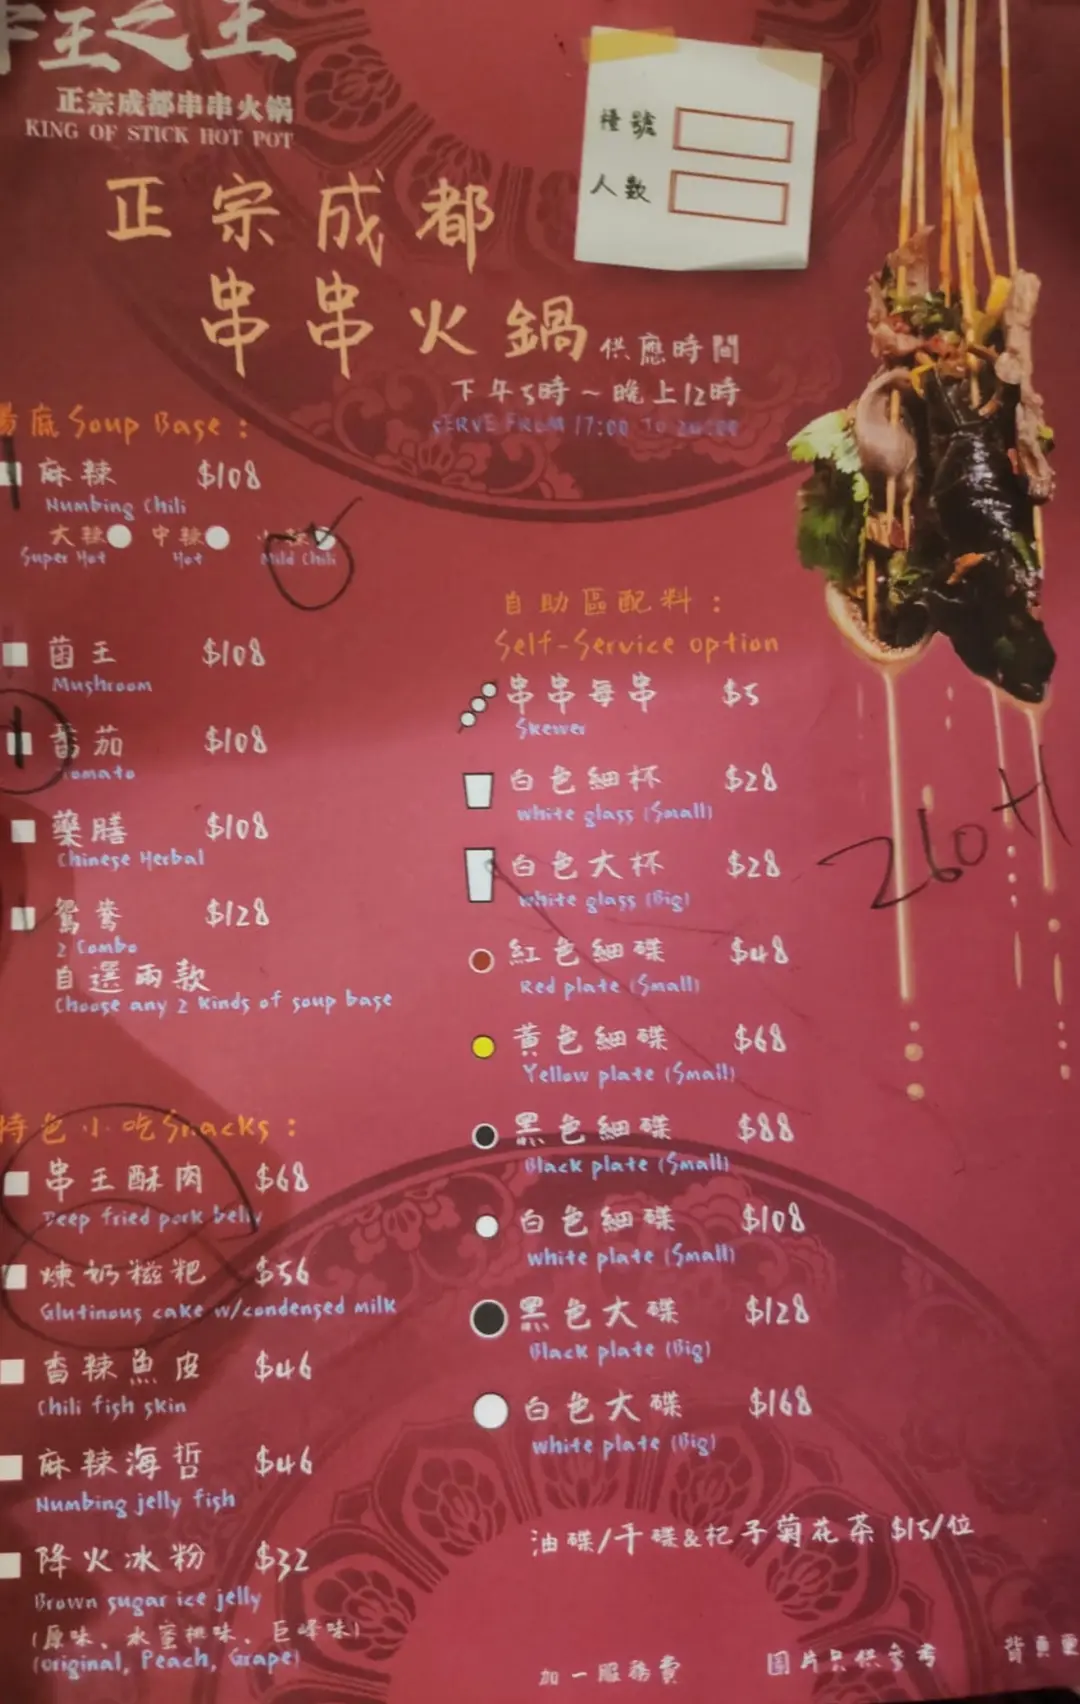 王之王
正宗成都串串火锅
KING OF STICK HOT POT
檯號
人數
正宗成都
串串火鍋
供應時間
下午5時～晚上12時
SERVE FROM 17:00 TO 24:00
湯底 Soup Base :
麻辣 $108
Numbing Chili
大辣 中辣 小辣
Super Hot Hot Mild Chili
菌王 $108
Mushroom
番茄 $108
Tomato
藥膳 $108
Chinese Herbal
鴛鴦 $128
2 Combo
自選兩款
Choose any 2 kinds of soup base
特色小吃 Snacks :
串王酥肉 $68
Deep fried pork belly
煉奶糍粑 $56
Glutinous cake w/condensed milk
香辣魚皮 $46
Chili fish skin
麻辣海哲 $46
Numbing jelly fish
降火冰粉 $32
Brown sugar ice jelly
(原味、水蜜桃味、巨峰味)
(original, Peach, Grape)
自助區配料 :
Self-Service option
串串每串 $5
Skewer
白色細杯 $28
white glass (Small)
白色大杯 $28
white glass (Big)
紅色細碟 $48
Red plate (Small)
黃色細碟 $68
Yellow plate (Small)
黑色細碟 $88
Black plate (Small)
白色細碟 $108
white plate (Small)
黑色大碟 $128
Black plate (Big)
白色大碟 $168
white plate (Big)
260+1
油碟/干碟&杞子菊花茶 $15/位
加一服務費
圖片只供參考
背頁